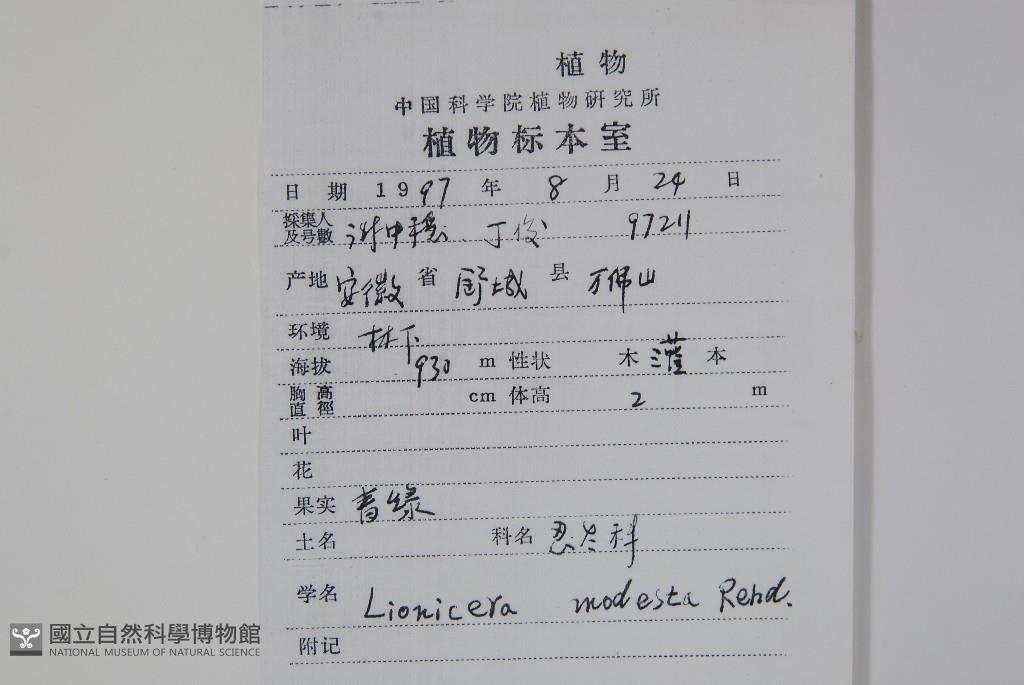 植物
中国科学院植物研究所
植物标本室
日 期 1997 年 8 月 24 日
採集人及号數 谢中稳、丁俊 97211
产地 安徽 省 舒城 县 万佛山
环境 林下
海拔 930 m 性状 木 灌 本
胸高直徑 cm 体高 2 m
叶
花
果实 青绿
土名 科名 忍冬科
学名 Lionicera modesta Rehd.
附记
國立自然科學博物館
NATIONAL MUSEUM OF NATURAL SCIENCE